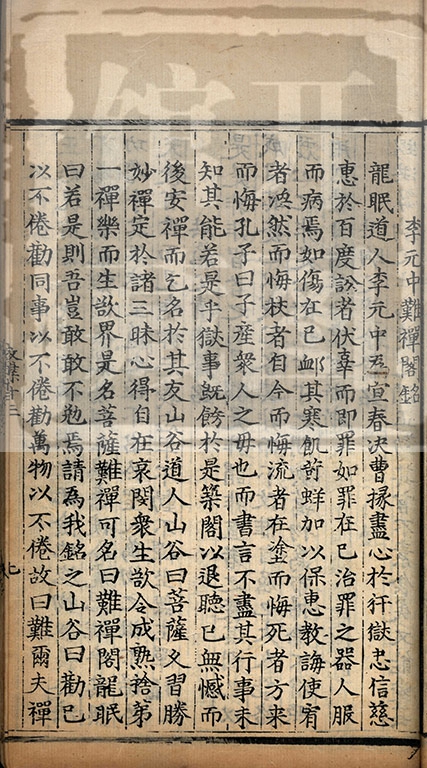 李元中難禪閣銘
龍眠道人李元中為宣春決曹掾盡心於犴獄忠信慈
惠於百度訟者伏辜而即罪如罪在已治罪之器人服
而病焉如傷在已卹其寒飢苛蛘加以保惠教誨使宥
者渙然而悔扶者自今而悔流者在塗而悔死者方來
而悔孔子曰子產衆人之母也而書言不盡其行事未
知其能若是乎獄事既飭於是築閣以退聽已無憾而
後安禪而乞名於其友山谷道人山谷曰菩薩乂習勝
妙禪定於諸三昧心得自在哀閔衆生欲令成熟捨第
一禪樂而生欲界是名菩薩難禪可名曰難禪閣龍眠
曰若是則吾豈敢敢不勉焉請為我銘之山谷曰勸已
以不倦勸同事以不倦勸萬物以不倦故曰難爾夫禪
七